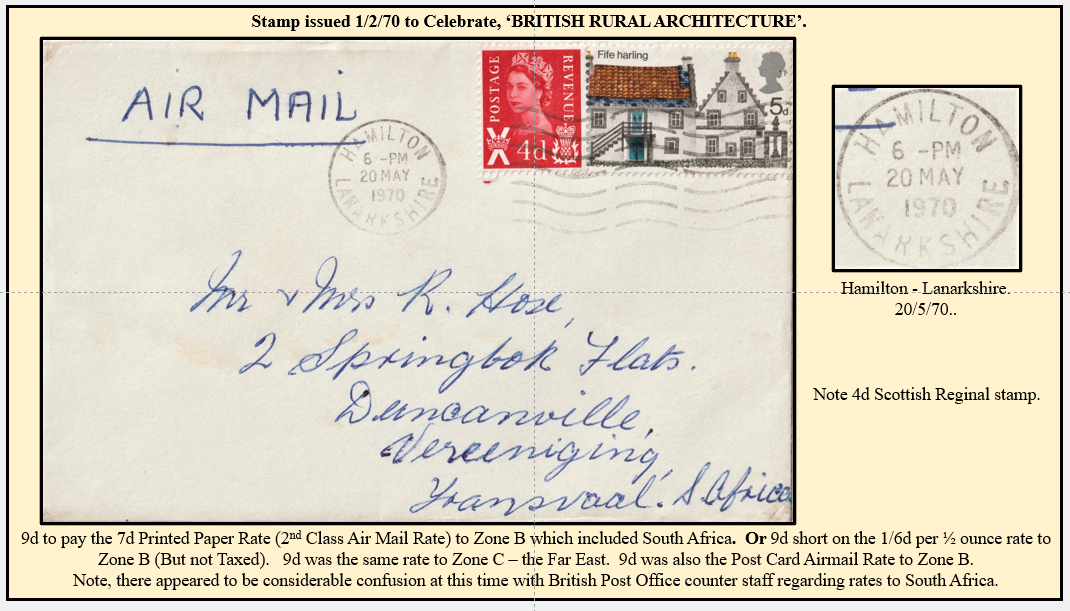 Stamp issued 1/2/70 to Celebrate, ‘BRITISH RURAL ARCHITECTURE’.
AIR MAIL
POSTAGE
REVENUE
4d
Fife harling
5d
HAMILTON
6 -PM
20 MAY
1970
LANARKSHIRE
Mr & Mrs R. Hose,
2 Springbok Flats.
Duncanville,
Vereeniging,
Transvaal. S. Africa
HAMILTON
6 -PM
20 MAY
1970
LANARKSHIRE
Hamilton - Lanarkshire.
20/5/70..
Note 4d Scottish Reginal stamp.
9d to pay the 7d Printed Paper Rate (2nd Class Air Mail Rate) to Zone B which included South Africa. Or 9d short on the 1/6d per ½ ounce rate to
Zone B (But not Taxed). 9d was the same rate to Zone C – the Far East. 9d was also the Post Card Airmail Rate to Zone B.
Note, there appeared to be considerable confusion at this time with British Post Office counter staff regarding rates to South Africa.